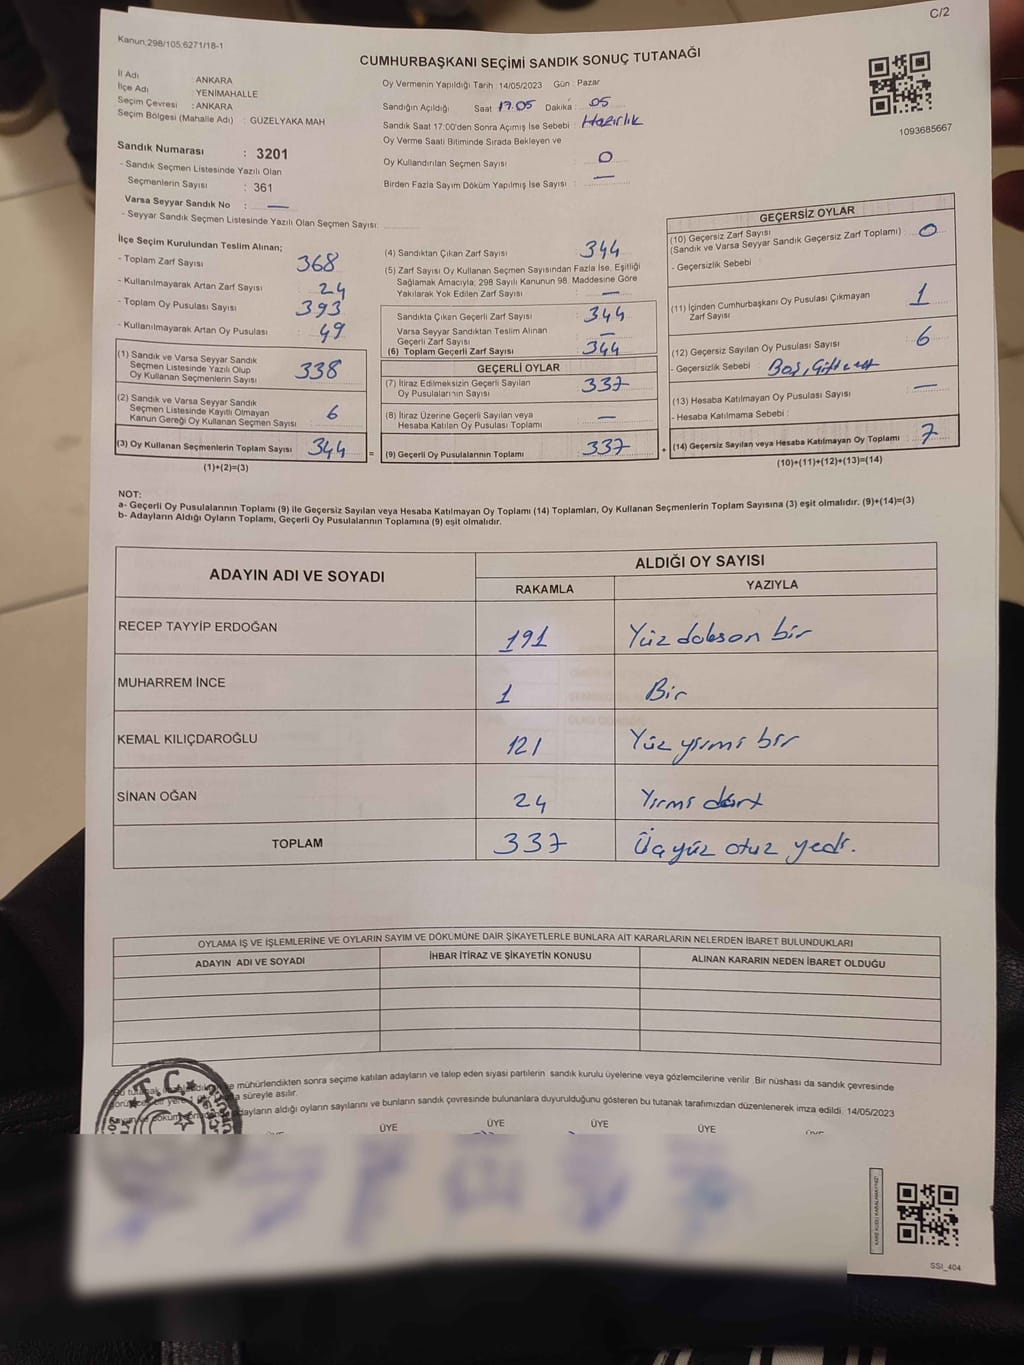 C/2
Kanun,298/105.6271/18-1
CUMHURBAŞKANI SEÇİMİ SANDIK SONUÇ TUTANAĞI
İl Adı : ANKARA
İlçe Adı : YENİMAHALLE
Seçim Çevresi : ANKARA
Seçim Bölgesi (Mahalle Adı) : GÜZELYAKA MAH
Oy Vermenin Yapıldığı Tarih : 14/05/2023 Gün : Pazar
Sandığın Açıldığı Saat 17.05 Dakika : 05
Sandık Saat 17:00'den Sonra Açımış İse Sebebi : Hazırlık
Oy Verme Saati Bitiminde Sırada Bekleyen ve
Oy Kullandırılan Seçmen Sayısı : 0
Birden Fazla Sayım Döküm Yapılmış İse Sayısı : —
1093685667
Sandık Numarası : 3201
- Sandık Seçmen Listesinde Yazılı Olan
Seçmenlerin Sayısı : 361
Varsa Seyyar Sandık No : —
- Seyyar Sandık Seçmen Listesinde Yazılı Olan Seçmen Sayısı:
İlçe Seçim Kurulundan Teslim Alınan;
- Toplam Zarf Sayısı 368
- Kullanılmayarak Artan Zarf Sayısı 24
- Toplam Oy Pusulası Sayısı 393
- Kullanılmayarak Artan Oy Pusulası 49
(1) Sandık ve Varsa Seyyar Sandık
Seçmen Listesinde Yazılı Olup
Oy Kullanan Seçmenlerin Sayısı 338
(2) Sandık ve Varsa Seyyar Sandık
Seçmen Listesinde Kayıtlı Olmayan
Kanun Gereği Oy Kullanan Seçmen Sayısı : 6
(3) Oy Kullanan Seçmenlerin Toplam Sayısı 344 =
(1)+(2)=(3)
(4) Sandıktan Çıkan Zarf Sayısı 344
(5) Zarf Sayısı Oy Kullanan Seçmen Sayısından Fazla İse, Eşitliği
Sağlamak Amacıyla; 298 Sayılı Kanunun 98. Maddesine Göre
Yakılarak Yok Edilen Zarf Sayısı : —
Sandıkta Çıkan Geçerli Zarf Sayısı : 344
Varsa Seyyar Sandıktan Teslim Alınan
Geçerli Zarf Sayısı : —
(6) Toplam Geçerli Zarf Sayısı : 344
GEÇERLİ OYLAR
(7) İtiraz Edilmeksizin Geçerli Sayılan
Oy Pusulalarının Sayısı : 337
(8) İtiraz Üzerine Geçerli Sayılan veya
Hesaba Katılan Oy Pusulası Toplamı : —
(9) Geçerli Oy Pusulalarının Toplamı : 337 +
GEÇERSİZ OYLAR
(10) Geçersiz Zarf Sayısı
(Sandık ve Varsa Seyyar Sandık Geçersiz Zarf Toplamı) : 0
- Geçersizlik Sebebi :
(11) İçinden Cumhurbaşkanı Oy Pusulası Çıkmayan
Zarf Sayısı 1
(12) Geçersiz Sayılan Oy Pusulası Sayısı : 6
- Geçersizlik Sebebi : Boş,
(13) Hesaba Katılmayan Oy Pusulası Sayısı : —
- Hesaba Katılmama Sebebi :
(14) Geçersiz Sayılan veya Hesaba Katılmayan Oy Toplamı : 7
(10)+(11)+(12)+(13)=(14)
NOT:
a- Geçerli Oy Pusulalarının Toplamı (9) ile Geçersiz Sayılan veya Hesaba Katılmayan Oy Toplamı (14) Toplamları, Oy Kullanan Seçmenlerin Toplam Sayısına (3) eşit olmalıdır. (9)+(14)=(3)
b- Adayların Aldığı Oyların Toplamı, Geçerli Oy Pusulalarının Toplamına (9) eşit olmalıdır.
ADAYIN ADI VE SOYADI ALDIĞI OY SAYISI
RAKAMLA YAZIYLA
RECEP TAYYİP ERDOĞAN 191 Yüz doksan bir
MUHARREM İNCE 1 Bir
KEMAL KILIÇDAROĞLU 121 Yüz yirmi bir
SİNAN OĞAN 24 Yirmi dört
TOPLAM 337 Üçyüz otuz yedi.
OYLAMA İŞ VE İŞLEMLERİNE VE OYLARIN SAYIM VE DÖKÜMÜNE DAİR ŞİKAYETLERLE BUNLARA AİT KARARLARIN NELERDEN İBARET BULUNDUKLARI
ADAYIN ADI VE SOYADI İHBAR İTİRAZ VE ŞİKAYETİN KONUSU ALINAN KARARIN NEDEN İBARET OLDUĞU
Bu tutanak mühürlendikten sonra seçime katılan adayların ve talep eden siyasi partilerin sandık kurulu üyelerine veya gözlemcilerine verilir. Bir nüshası da sandık çevresinde
süreyle asılır.
adayların aldığı oyların sayılarını ve bunların sandık çevresinde bulunanlara duyurulduğunu gösteren bu tutanak tarafımızdan düzenlenerek imza edildi. 14/05/2023
T.C.
ÜYE ÜYE ÜYE ÜYE ÜYE
SSI_404